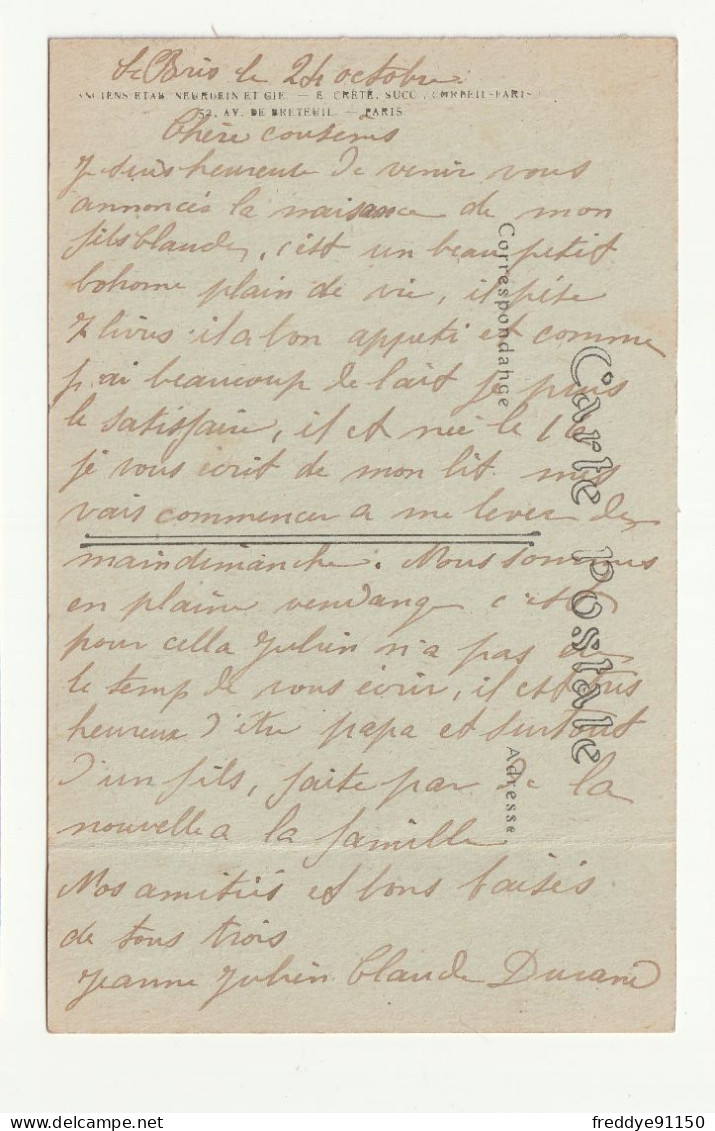 St Bris le 24 octobre
ANCIENS ETAB. NEURDEIN ET CIE. — E. CRÉTÉ, SUCC., CORBEIL-PARIS
52, AV. DE BRETEUIL. — PARIS
Chère cousens
Je suis heureuse de venir vous
annoncés la naisance de mon
fils Claude, c'est un beau petit
bohome plain de vie, il pése
7 livres il a bon appeti et comme
j'ai beaucoup de lait je puis
le satisfaire, il et née le 16
je vous ecrit de mon lit mes
vais commencer a me lever de
main dimanche. Nous sommes
en plaine vendange c'est
pour cella Julien n'a pas eu
le temp de vous écrir, il est tres
heureux d'être papa et surtout
d'un fils, faite par de la
nouvelle a la famille
Nos amitiés et bons baisés
de tous trois
Jeanne Julien Claude Durand
Correspondance
Carte postale
Adresse
freddye91150